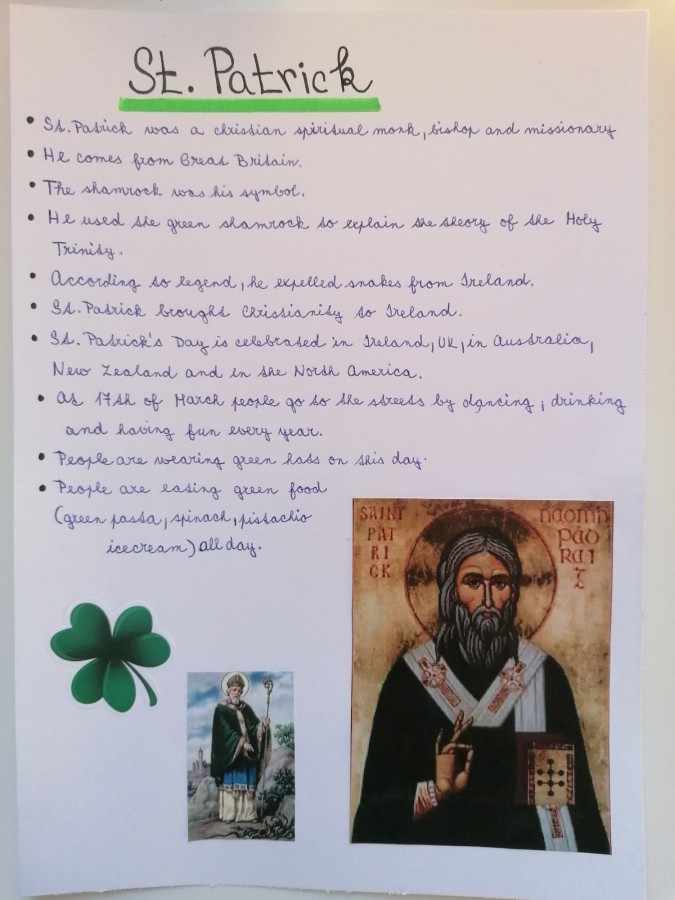 St. Patrick
• St. Patrick was a christian spiritual monk, bishop and missionary
• He comes from Great Britain.
• The shamrock was his symbol.
• He used the green shamrock to explain the theory of the Holy
Trinity.
• According to legend, he expelled snakes from Ireland.
• St. Patrick brought Christianity to Ireland.
• St. Patrick's Day is celebrated in Ireland, UK, in Australia,
New Zealand and in the North America.
• At 17th of March people go to the streets by dancing, drinking
and having fun every year.
• People are wearing green hats on this day.
• People are eating green food
(green pasta, spinach, pistachio
icecream) all day.
SAINT
PAT
RI
CK
naomh
pád
RAI